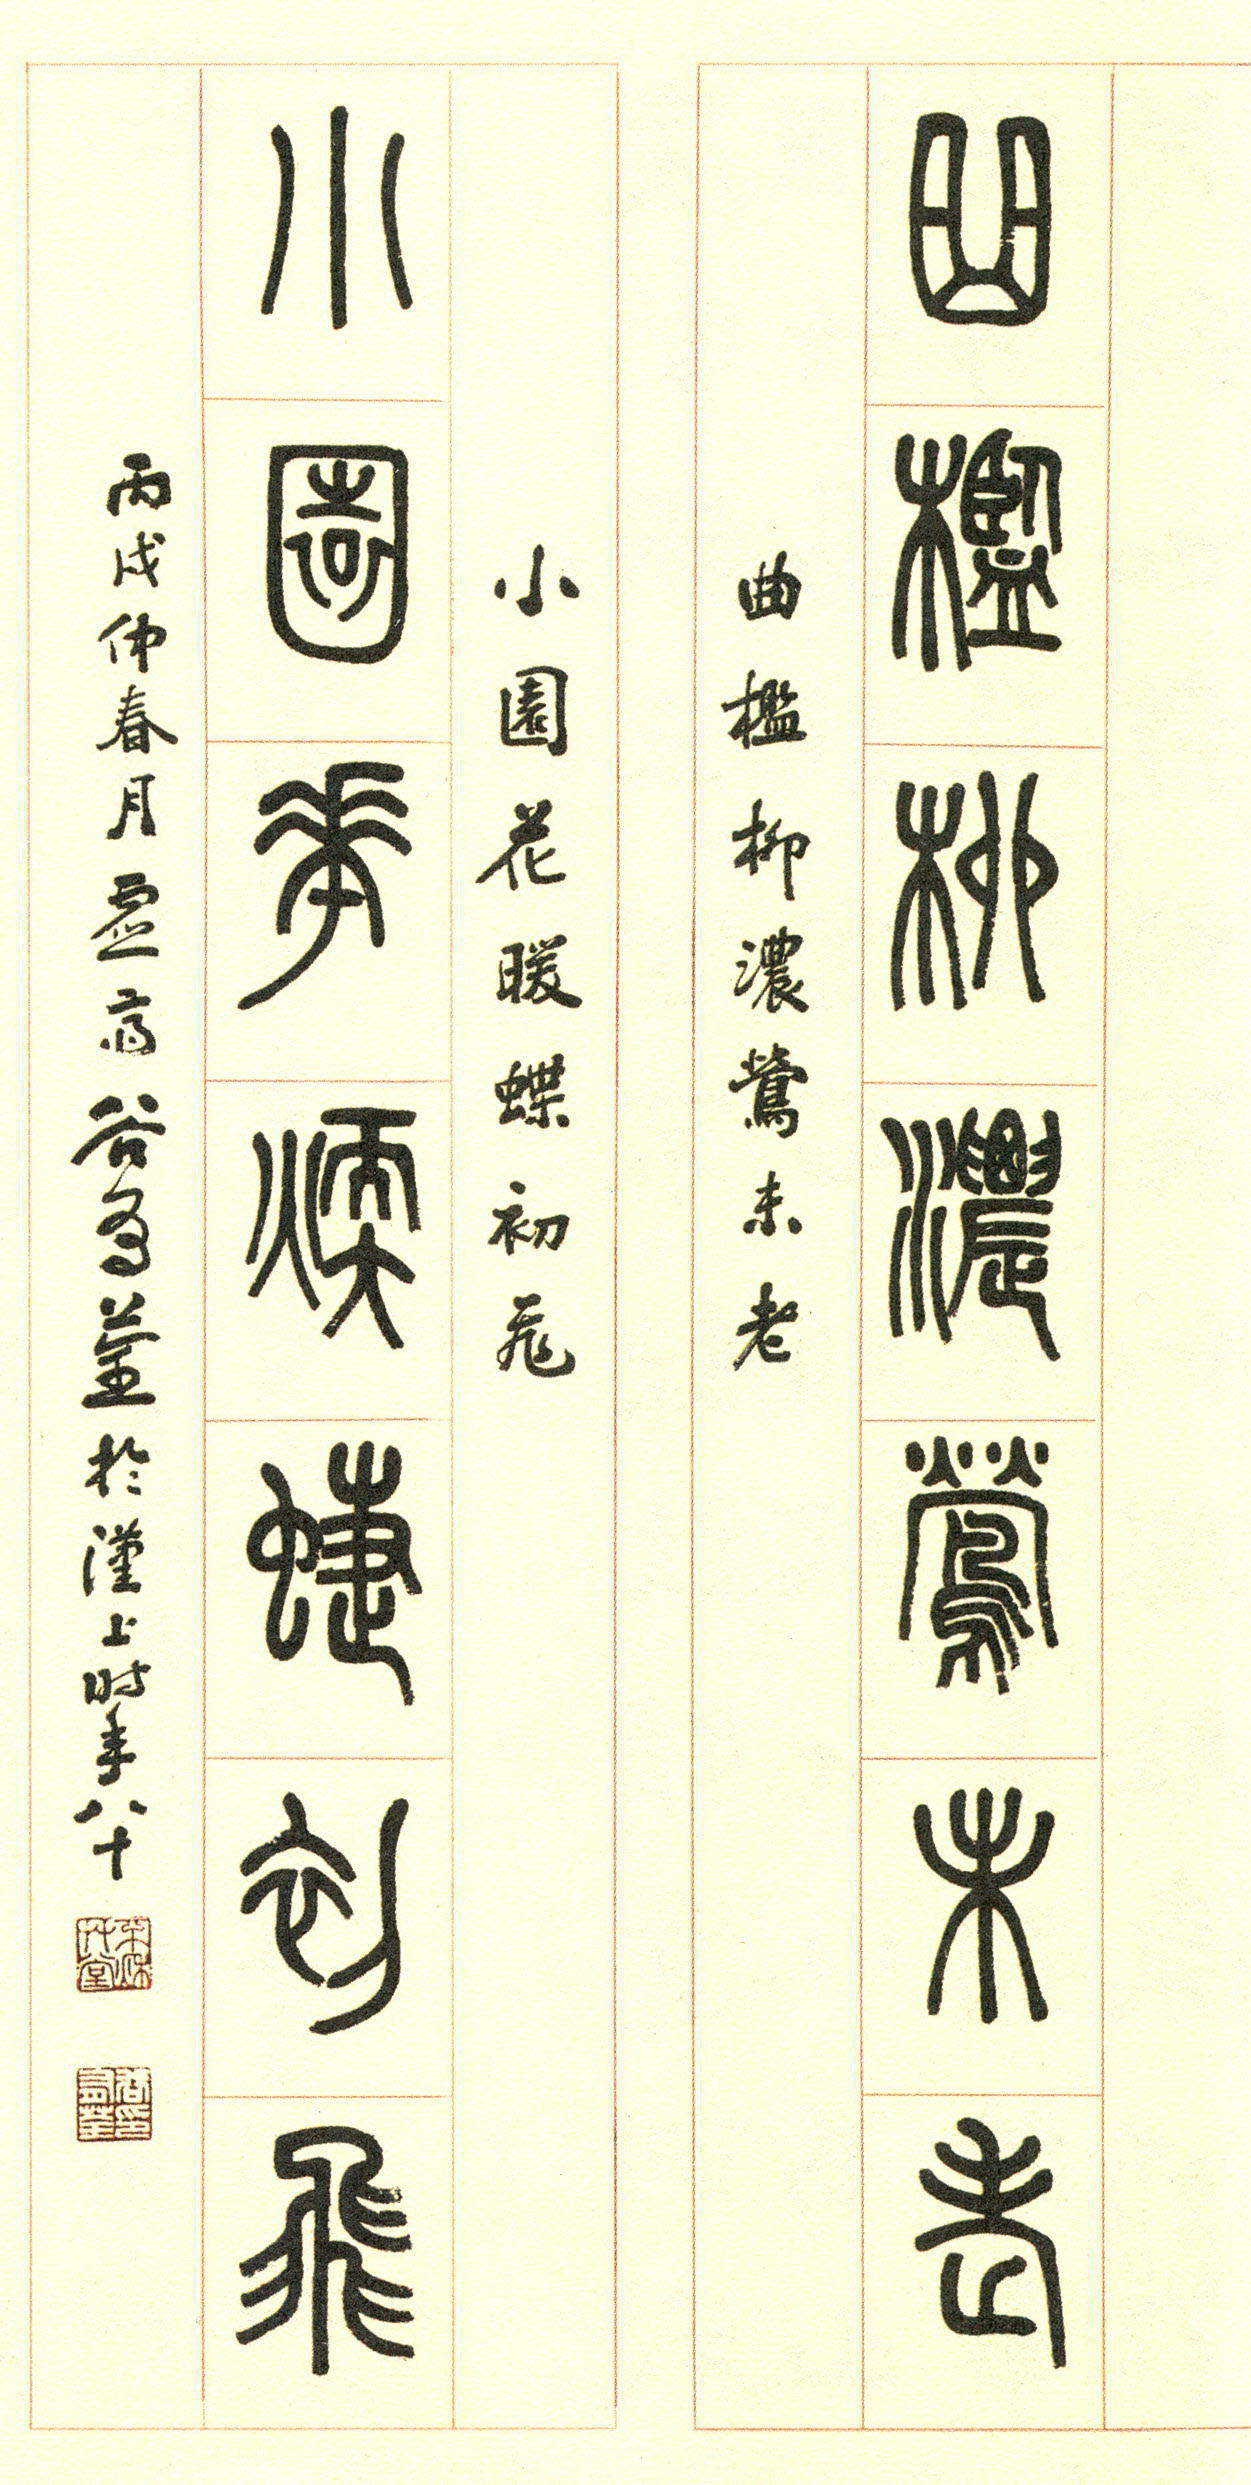 曲檻柳濃鶯未老
曲檻柳濃鶯未老
小園花暖蝶初飛
小園華煗蜨初飛
丙戌仲春月虛齋谷有荃於漢上時年八十